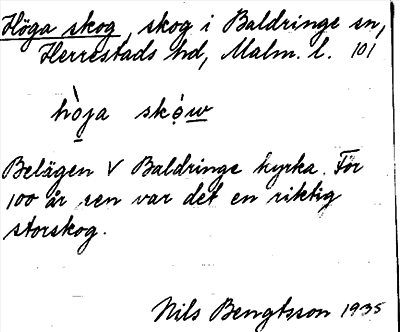 Höga skog, skog i Baldringe sn,
Herrestads hd, Malm. l. 101
hò̱ja skọ́w
Belägen V Baldringe kyrka. För
100 år sen var det en riktig
storskog.
Nils Bengtsson 1935